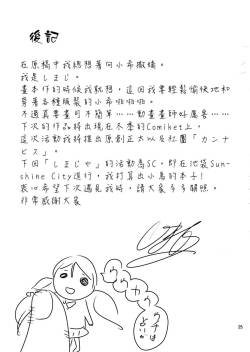 後記
在原稿中我總想着向小希撒嬌。
我是しまじ。
畫本子的時候我就想，這回我要輕鬆愉快地和
穿著各種服裝的小希啪啪啪。
不過真要畫可不簡單……動畫畫師好厲害……
下次的作品將出現在冬季的Comiket上，
這次活動我將推出原創正太以及社團「カンナ
ビス」。
下回「しまじや」的活動為SC，即在池袋Sun-
shine City進行，我打算出小鳥的本子!
衷心希望下次遇見我時，請大家多多關照。
非常感謝大家
25